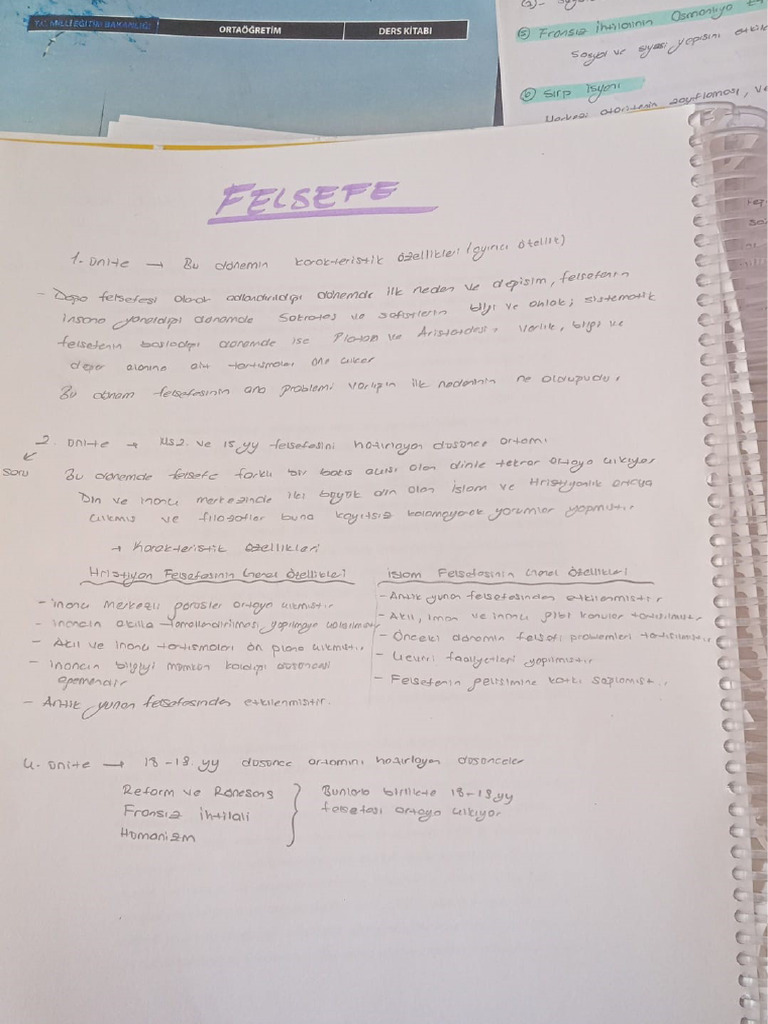 T.C. MİLLİ EĞİTİM BAKANLIĞI
ORTAÖĞRETİM
DERS KİTABI
⑤ Fransız İhtilalinin Osmanlıya
Sosyal ve siyasi yapısını
⑥ Sırp İsyanı
Merkezi otoritenin zayıflaması,
FELSEFE
1. ünite → Bu dönemin karakteristik özellikleri (ayırıcı özellik)
- Doğa felsefesi olarak adlandırıldığı dönemde ilk neden ve değişim, felsefenin
insana yöneldiği dönemde Sokrates ve sofistlerin bilgi ve ahlak; sistematik
felsefenin başladığı dönemde ise Platon ve Aristoteles, varlık, bilgi ve
değer alanına ait tartışmaları öne çıkar
Bu dönem felsefesinin ana problemi varlığın ilk nedeninin ne olduğudur.
2. ünite → MS 2. ve 15. yy felsefesini hazırlayan düşünce ortamı
soru
Bu dönemde felsefe farklı bir bakış açısı olan dinle tekrar ortaya çıkıyor
Din ve inanç merkezinde iki büyük din olan İslam ve Hristiyanlık ortaya
çıkmış ve filozoflar buna kayıtsız kalamayarak yorumlar yapmıştır.
→ Karakteristik özellikleri
Hristiyan Felsefesinin Genel Özellikleri
- İnanç merkezli görüşler ortaya çıkmıştır
- İnancın akılla temellendirilmesi yapılmaya çalışılmıştır
- Akıl ve inanç tartışmaları ön plana çıkmıştır.
- İnancın bilgiyi mümkün kıldığı düşüncesi
egemendir
- Antik yunan felsefesinden etkilenmiştir.
İslam Felsefesinin Genel Özellikleri
- Antik yunan felsefesinden etkilenmiştir
- Akıl, iman ve inanç gibi konular tartışılmıştır
- Önceki dönemin felsefi problemleri tartışılmıştır.
- Çeviri faaliyetleri yapılmıştır
- Felsefenin gelişimine katkı sağlamıştır
4. ünite → 18-19. yy düşünce ortamını hazırlayan düşünceler
Reform ve Rönesans
Fransız ihtilali
Hümanizm
Bunlarla birlikte 18-19 yy
felsefesi ortaya çıkıyor